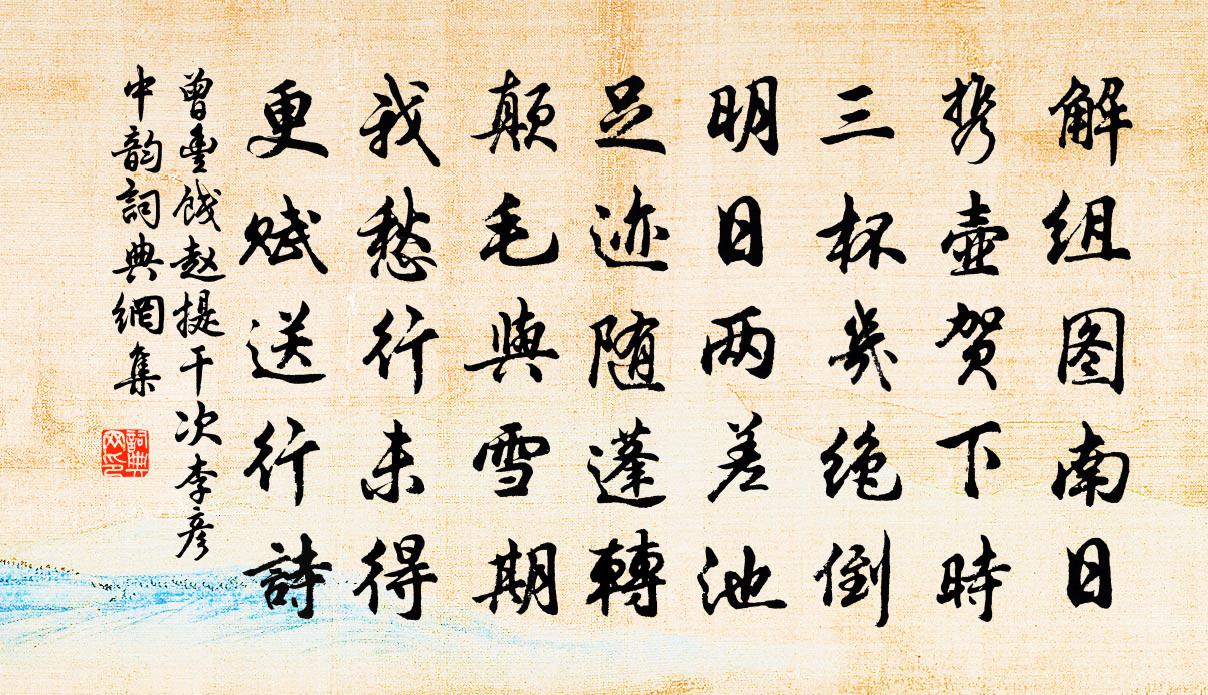 解组图南日
携壶贺下时
三杯几绝倒
明日两差池
足迹随蓬轉
颠毛与雪期
我愁行未得
更赋送行詩
曾豊饯赵提干次李彦
中韵詞典網集
詞典网印